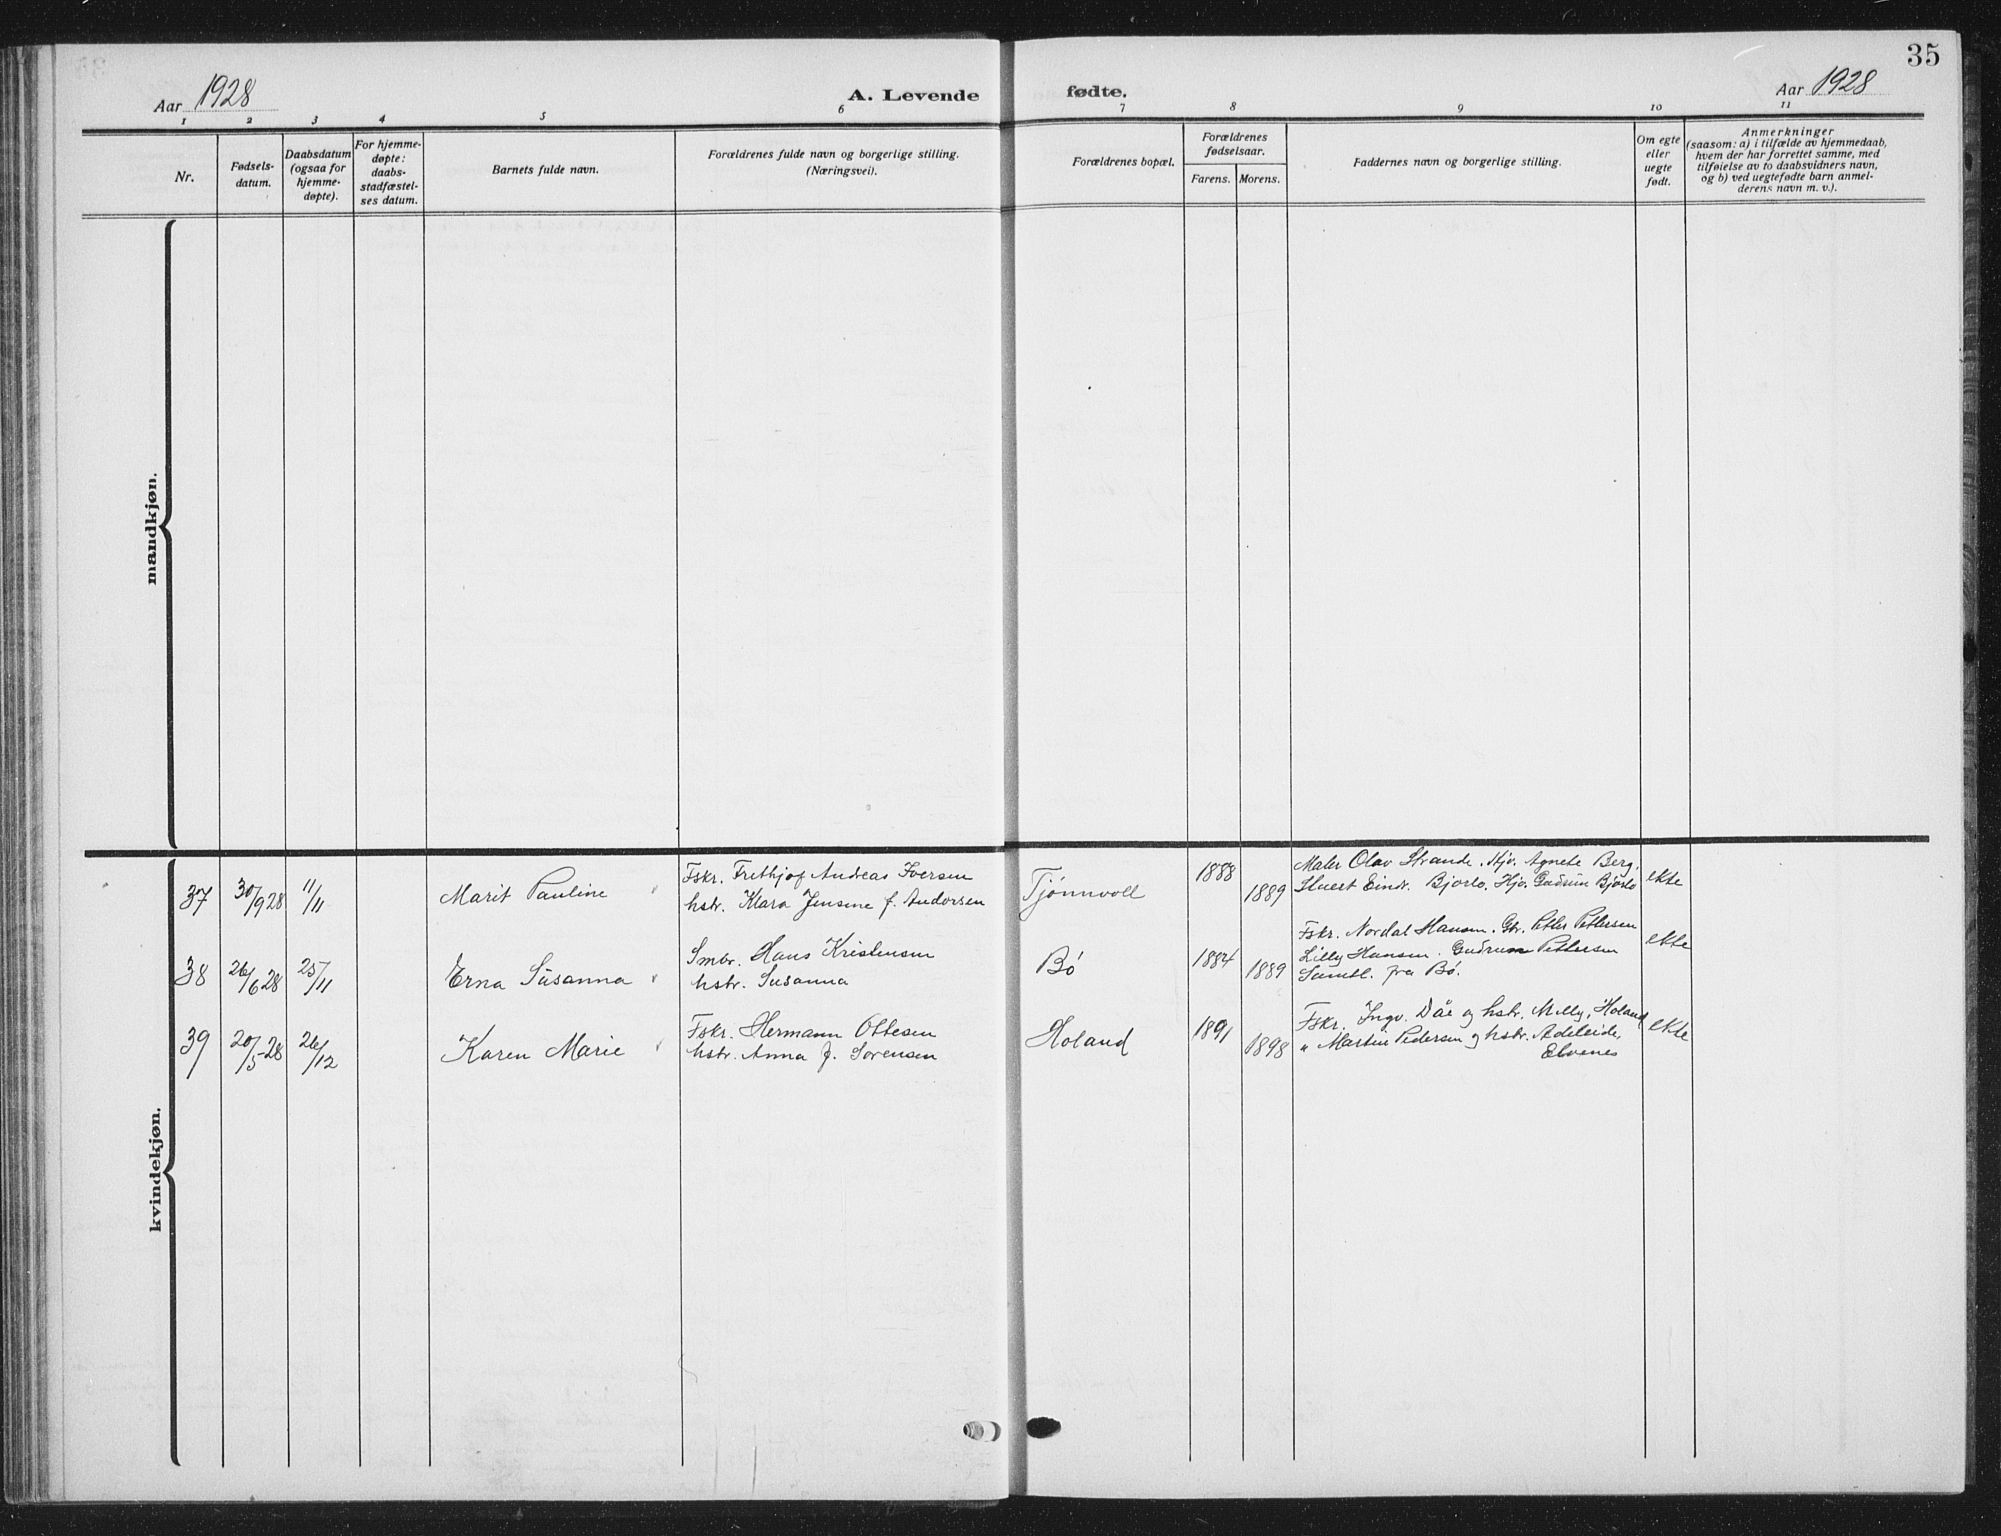 35
Aar 1928
A. Levende fødte.
Aar 1928
1 2 3 4 5 6 7 8 9 10 11
Nr.
Fødsels-
datum.
Daabsdatum
(ogsaa for
hjemme-
døpte).
For hjemme-
døpte:
daabs-
stadfæstel-
ses datum.
Barnets fulde navn.
Forældrenes fulde navn og borgerlige stilling.
(Næringsvei).
Forældrenes bopæl.
Forældrenes
fødselsaar.
Farens. Morens.
Faddernes navn og borgerlige stilling.
Om egte
eller
uegte
født.
Anmerkninger
(saasom: a) i tilfælde av hjemmedaab,
hvem der har forrettet samme, med
tilføielse av to daabsvidners navn,
og b) ved uegtefødte barn anmel-
derens navn m. v.).
mandkjøn.
kvindekjøn.
37 30/9 28 11/11 Marit Pauline
Fskr. Frethjof Andreas Iversen
hstr. Klara Jensine f. Andersen
Tjønnvoll 1888 1889
Maler Olav Strande. Hjv. Agnete Berg.
Stuest Eindr. Bjorlo. Hjv. Gudrun Bjørlo
ekte
38 26/6 28 25/11 Erna Susanna
Smbr. Hans Kristensen
hstr. Susanna
Bø 1884 1889
Fskr. Nordal Hansen. Gbr. Peter Pettersen
Lilly Hansen. Gudrun Pettersen
Samtl. fra Bø.
ekte
39 20/5-28 26/12 Karen Marie
Fskr. Hermann Ottesen
hstr. Anna f. Sorensen
Holand 1891 1898
Fskr. Ingv. Dåe og hstr. Milly, Holand
" Martin Pedersen og hstr. Adeleide,
Elvenes
ekte